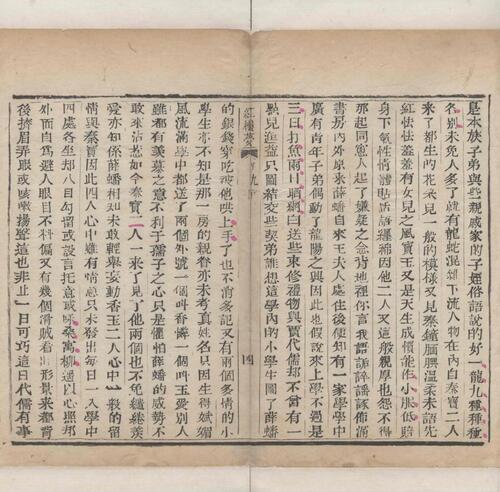 是本族子弟與些親戚家的子姪俗語說的好一龍九種種種
各別未免人多了就有龍蛇混雜下流人物在內自秦寶二人
來了都生的花朶兒一般的模樣又見秦鐘靦腆溫柔未語先
紅怯怯羞羞有女兒之風寶玉又是天生成慣能作小服低賠
身下氣性情體貼話語纏綿因他二人又這般親厚也怨不得
那起同窻人起了嫌疑之念背地裡你言我語詬誶謠諑佈滿
書房內外原來薛蟠自來王夫人處住後便知有一家學學中
廣有青年子弟偶動了龍陽之興因此也假說來上學不過是
三日打魚兩日晒網白送些束修禮物與賈代儒却不曾有一
點兒進益只圖結交些契弟誰想這學內的小學生圖了薛蟠
紅樓夢
第九囘
四
的銀錢穿吃被他哄上手了也不消多記又有兩個多情的小
學生亦不知是那一房的親眷亦未考真姓名只因生得嫵媚
風流滿學中都送了兩個外號一個叫香憐一個叫玉愛別人
雖都有羨慕之意不利于孺子之心只是懼怕薛蟠的威勢不
敢來沾惹如今秦寶二人一來了見了他兩個也不免繾綣羨
愛亦知係薛蟠相知未敢輕舉妄動香玉二人心中一般的留
情與秦寶因此四人心中雖有情意只未發出每日一入學中
四處各坐却八目勾留或設言托意或咏桑寓柳遙以心照却
外面自為避人眼目不料偏又有幾個滑賊看出形景來都背
後擠眉弄眼或咳嗽揚聲這也非止一日可巧這日代儒有事